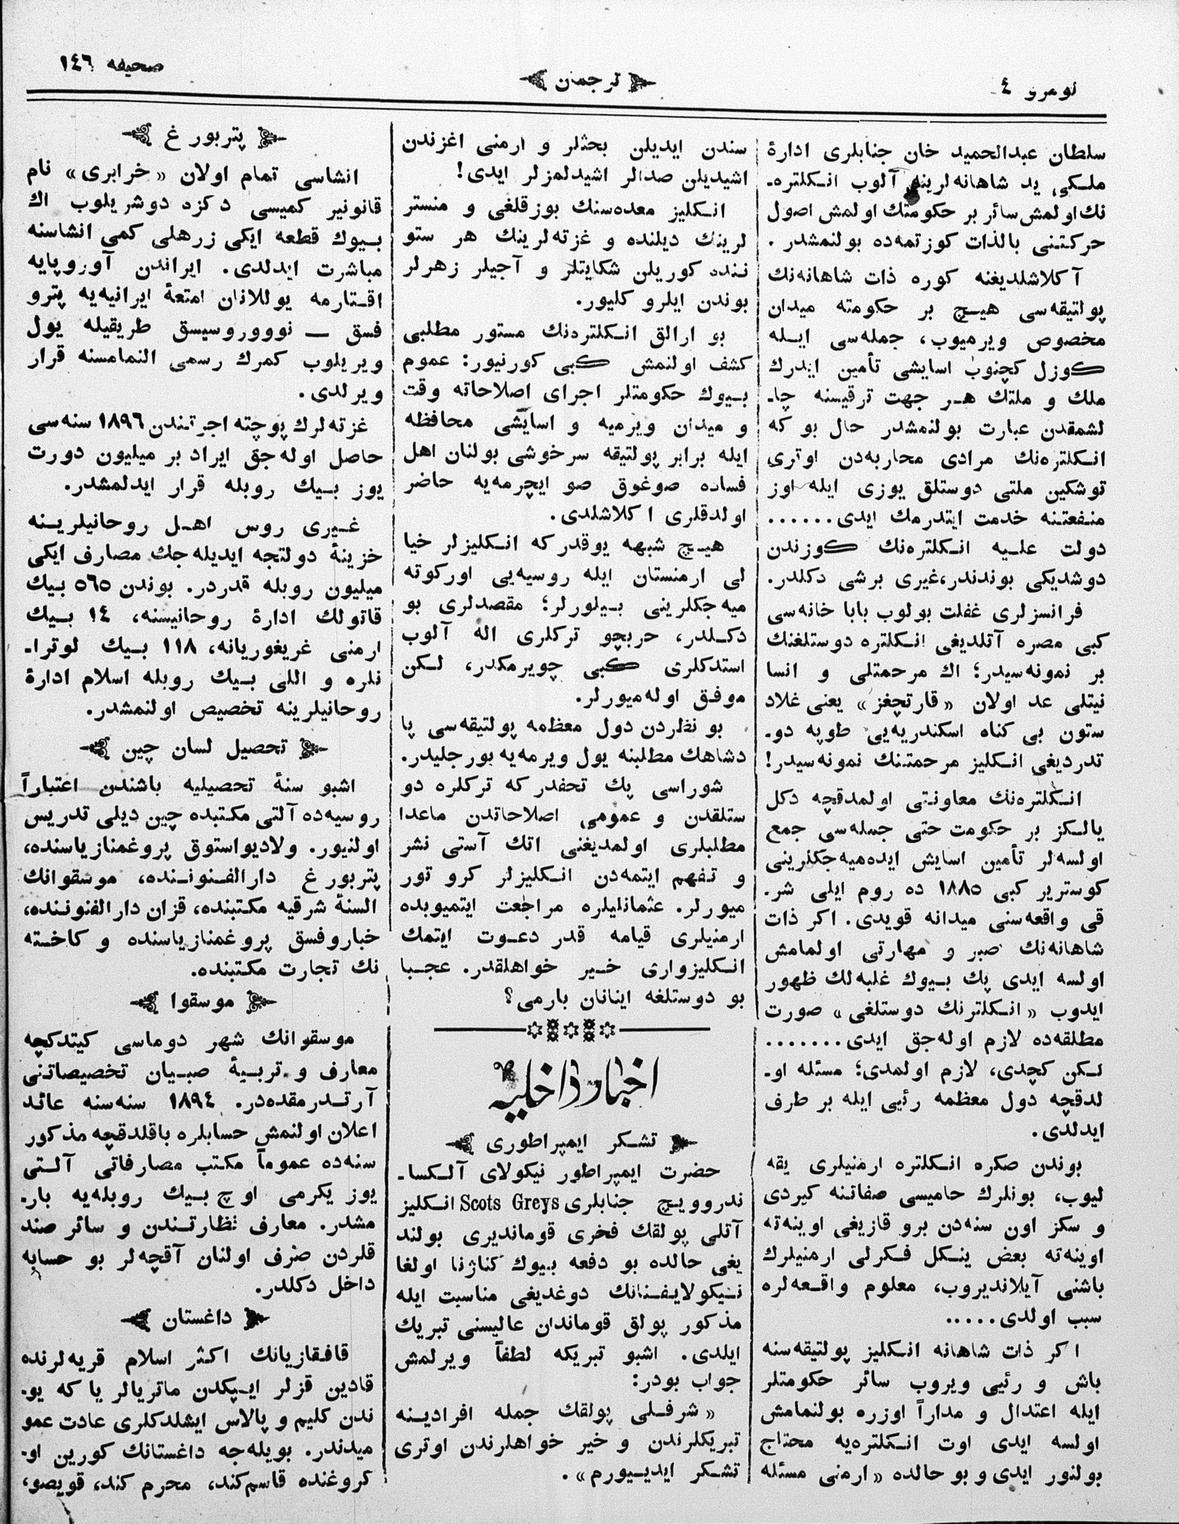 نومرو ٤
ترجمان
صحیفه ١٤٦
سلطان عبدالحمید خان جنابلری ادارۀ
ملکی، ید شاهانه‌لرینه آلوب انکلتره‌ـ
نك اولمش سائر بر حکومتك اولمش اصول
حرکتنی بالذات کوزتمه‌ده بولنمشدر .
آکلاشلدیغنه کوره ذات شاهانه‌نك
پولتیقه‌سی هیچ بر حکومته میدان
مخصوص ویرمیوب، جمله‌سی ایله
کوزل کچنوب اسایشی تأمین ایدرك
ملك و ملتك هر جهت ترقیسنه چا۔
لشمقدن عبارت بولنمشدر حال بو که
انکلتره‌نك مرادی محاربه‌دن اوتری
توشکین ملتی دوستلق یوزی ایله اوز
منفعتنه خدمت ایتدرمك ایدی......
دولت علیه انکلتره‌نك کوزندن
دوشدیکی بوندندر، غیری برشی دکلدر.
فرانسزلری غفلت بولوب بابا خانه‌سی
کبی مصره آتلدیغی انکلتره دوستلغنك
بر نمونه‌سیدر؛ اك مرحمتلی و انسا
نیتلی عد اولان «قارتچغز» یعنی غلاد
ستون بی کناه اسکندریه‌یی طوپه دو۔
تدردیغی انکلیز مرحمتنك نمونه‌سیدر!
انکلتره‌نك معاونتی اولمدقچه دکل
یالکز بر حکومت حتی جمله‌سی جمع
اولسه‌لر تأمین اسایش ایده‌میه‌جکلرینی
کوستریر کبی ١٨٨٥ ده روم ایلی شر۔
قی واقعه‌سنی میدانه قویدی. اکر ذات
شاهانه‌نك صبر و مهارتی اولمامش
اولسه ایدی پك بیوك غلبه‌لك ظهور
ایدوب «انکلترنك دوستلغی» صورت
مطلقه‌ده لازم اوله‌جق ایدی.......
لکن کچدی، لازم اولمدی؛ مسئله او۔
لدقچه دول معظمه رئیی ایله بر طرف
ایدلدی.
بوندن صکره انکلتره ارمنیلری یقه
لیوب، بونلرك حامیسی صفاتنه کیردی
و سکز اون سنه‌دن برو قازیغی اوینه‌ته
اوینه‌ته بعض ینکل فکرلی ارمنیلرك
باشنی آیلاندیروب، معلوم واقعه‌لره
سبب اولدی.....
اکر ذات شاهانه انکلیز پولتیقه‌سنه
باش و رئیی ویروب سائر حکومتلر
ایله اعتدال و مداراً اوزره بولنمامش
اولسه ایدی اوت انکلتره‌یه محتاج
بولنور ایدی و بو حالده «ارمنی مسئله
سندن ایدیلن بحثلر و ارمنی اغزندن
اشیدیلن صدالر اشیدلمزلر ایدی!
انکلیز معده‌سنك بوزقلغی و منستر
لرینك دیلنده و غزته‌لرینك هر ستو
ننده کوریلن شکایتلر و آجیلر زهرلر
بوندن ایلرو کلیور.
بو ارالق انکلتره‌نك مستور مطلبی
کشف اولنمش کبی کورنیور: عموم
بیوك حکومتلر اجرای اصلاحاته وقت
و میدان ویرمیه و اسایشی محافظه
ایله برابر پولتیقه سرخوشی بولنان اهل
فساده صوغوق صو ایچرمه‌یه حاضر
اولدقلری اکلاشلدی.
هیچ شبهه یوقدرکه انکلیزلر خیا
لی ارمنستان ایله روسیه‌یی اورکوته
میه‌جکلرینی بیلورلر؛ مقصدلری بو
دکلدر، حربچو ترکلری اله آلوب
استدکلری کبی چویرمکدر، لکن
موفق اوله‌میورلر.
بو نظردن دول معظمه پولتیقه‌سی پا
دشاهك مطلبنه یول ویرمه‌یه بورجلیدر.
شوراسی پك تحفدرکه ترکلره دو
ستلقدن و عمومی اصلاحاتدن ماعدا
مطلبلری اولمدیغنی اتك آستی نشر
و تفهم ایتمه‌دن انکلیزلر کرو تور
میورلر. عثمانلیلره مراجعت ایتمیوبده
ارمنیلری قیامه قدر دعوت ایتمك
انکلیزواری خیر خواهلقدر. عجبا
بو دوستلغه اینانان بارمی؟
اخبار داخلیه
تشکر ایمپراطوری
حضرت ایمپراطور نیکولای آلکسا۔
ندروویچ جنابلری Scots Greys انکلیز
آتلی پولقك فخری قوماندیری بولند
یغی حالده بو دفعه بیوك کناژنا اولغا
نیکولایفنانك دوغدیغی مناسبت ایله
مذکور پولق قوماندان عالیسنی تبریك
ایلدی. اشبو تبریکه لطفاً ویرلمش
جواب بودر:
«شرفلی پولقك جمله افرادینه
تبریکلرندن و خیر خواهلرندن اوتری
تشکر ایدییورم».
پتربورغ
انشاسی تمام اولان «خرابری» نام
قانونیر کمیسی دکزه دوشریلوب اك
بیوك قطعه ایکی زرهلی کمی انشاسنه
مباشرت ایدلدی. ایراندن آوروپایه
اقتارمه یوللانان امتعۀ ایرانیه‌یه پترو
فسق — نووو‌روسیسق طریقیله یول
ویریلوب کمرك رسمی النمامسنه قرار
ویرلدی.
غزته‌لرك پوچته اجرتندن ١٨٩٦ سنه‌سی
حاصل اوله‌جق ایراد بر میلیون دورت
یوز بیك روبله قرار ایدلمشدر.
غیری روس اهل روحانیلرینه
خزینۀ دولتجه ایدیله‌جك مصارف ایکی
میلیون روبله قدردر. بوندن ٥٦٥ بیك
قاتولك ادارۀ روحانیسنه، ١٤ بیك
ارمنی غریغوریانه، ١١٨ بیك لوترا۔
نلره و اللی بیك روبله اسلام ادارۀ
روحانیلرینه تخصیص اولنمشدر.
تحصیل لسان چین
اشبو سنۀ تحصیلیه باشندن اعتباراً
روسیه‌ده آلتی مکتبده چین دیلی تدریس
اولنیور. ولادیواستوق پروغمنازیاسنده،
پتربورغ دارالفنوننده، موسقوانك
السنۀ شرقیه مکتبنده، قزان دارالفنوننده،
خباروفسق پروغمنازیاسنده و کاخته
نك تجارت مکتبنده.
موسقوا
موسقوانك شهر دوماسی کیتدکچه
معارف و تربیۀ صبیان تخصیصاتنی
آرتدرمقده‌در. ١٨٩٤ سنه‌سنه عائد
اعلان اولنمش حسابلره باقلدقچه مذکور
سنه‌ده عموماً مکتب مصارفاتی آلتی
یوز یکرمی اوچ بیك روبله‌یه بار۔
مشدر. معارف نظارتندن و سائر صند
قلردن صرف اولنان آقچه‌لر بو حسابه
داخل دکلدر.
داغستان
قافقازیانك اکثر اسلام قریه‌لرنده
قادین قزلر ایپکدن ماتریالر یا که یو۔
ندن کلیم و پالاس ایشلدکلری عادت عمو
میدندر. بویله‌جه داغستانك کورین او۔
کروغنده قاسم‌کند، محرم کند، قویصو،